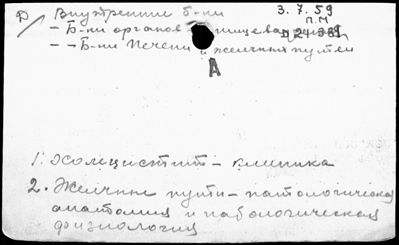 Д Внутренние б-ни 3.7.59
– Б-ни органов пищеварения П.М
– → Б-ни печени и желчных путей
А
1. Холецистит – клиника
2. Желчные пути – патологическая
анатомия и патологическая
физиология